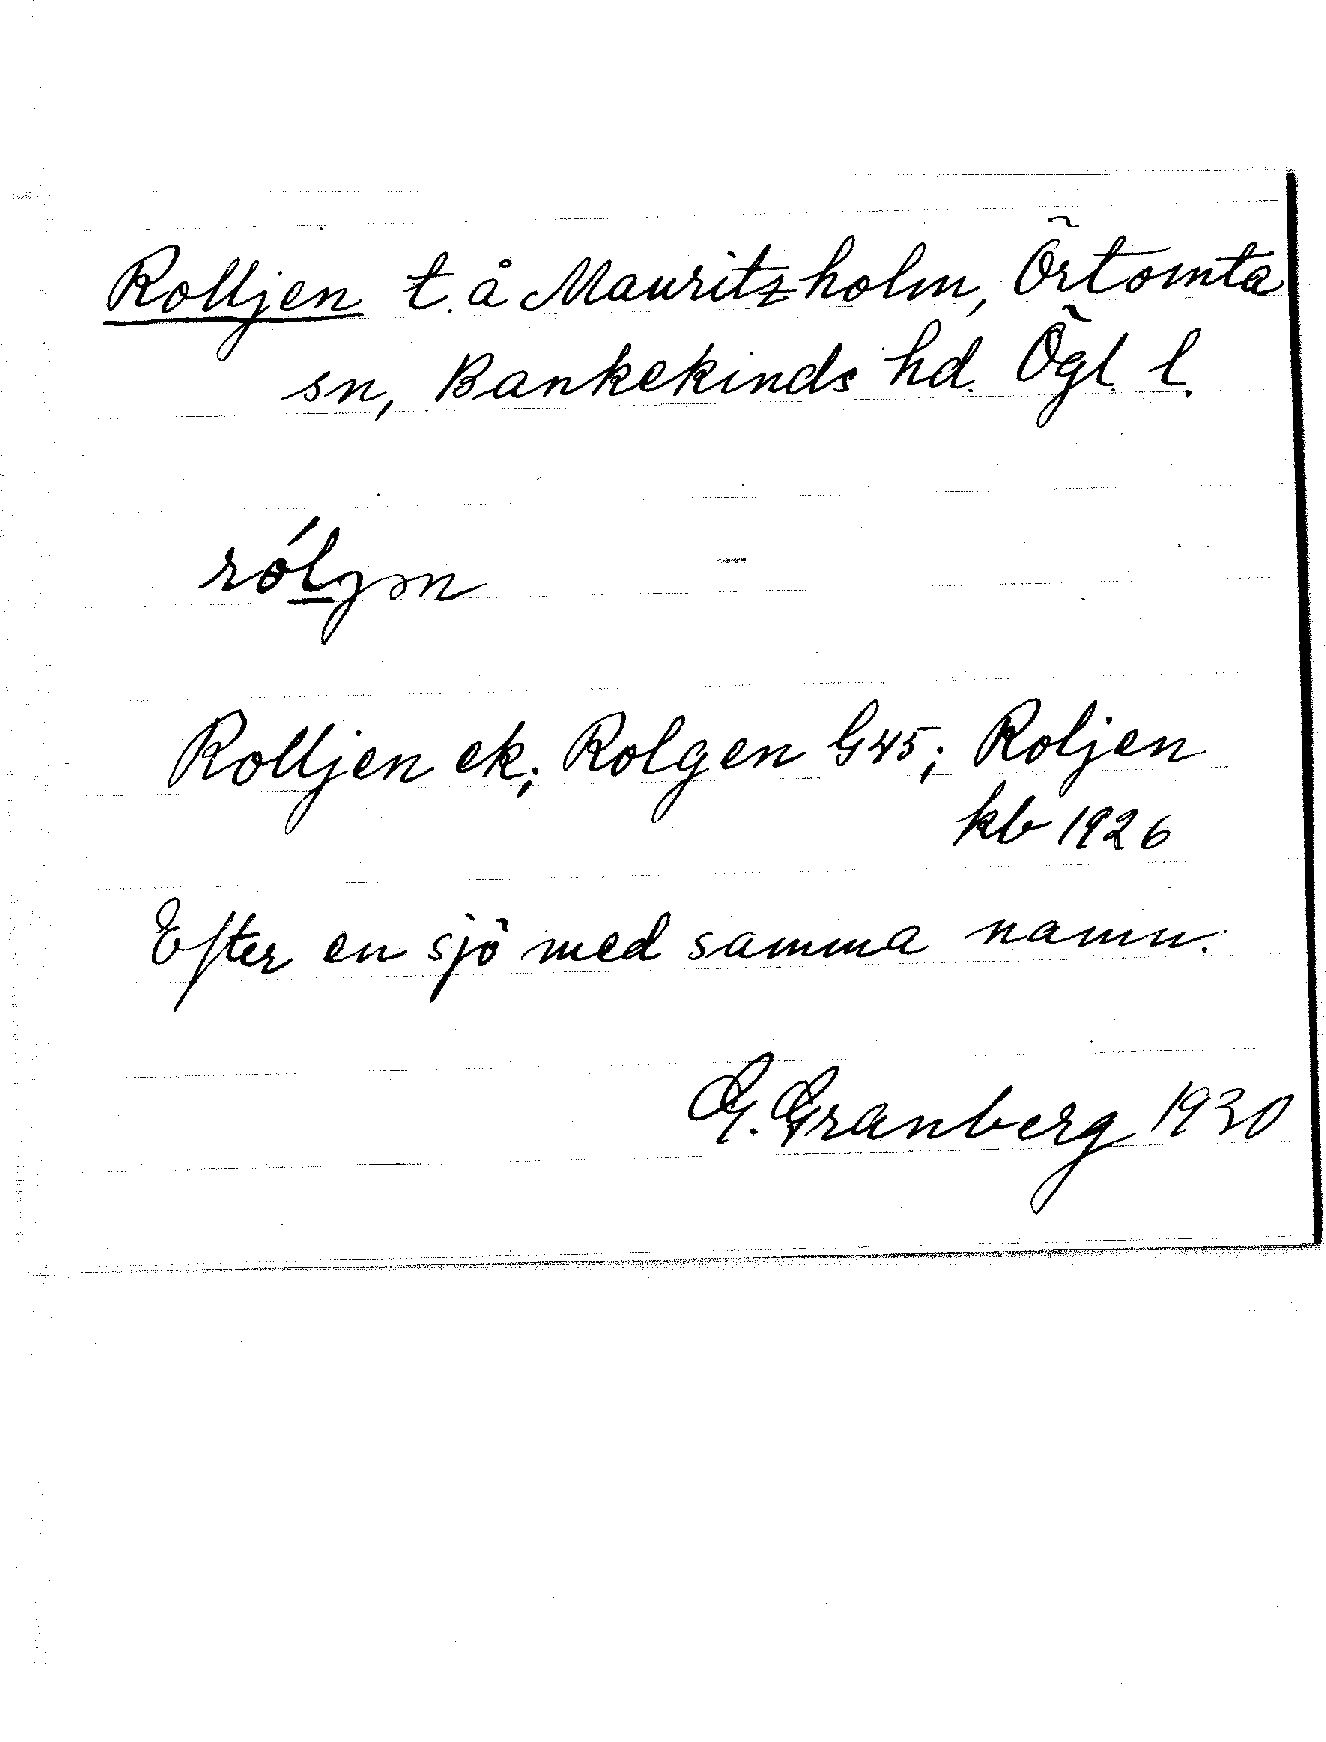 Rolljen t. å Mauritzholm, Örtomta
sn, Bankekinds hd. Ögl. l.
róljən
Rolljen ek; Rolgen G45; Roljen
kb 1926
Efter en sjö med samma namn.
G. Granberg 1930